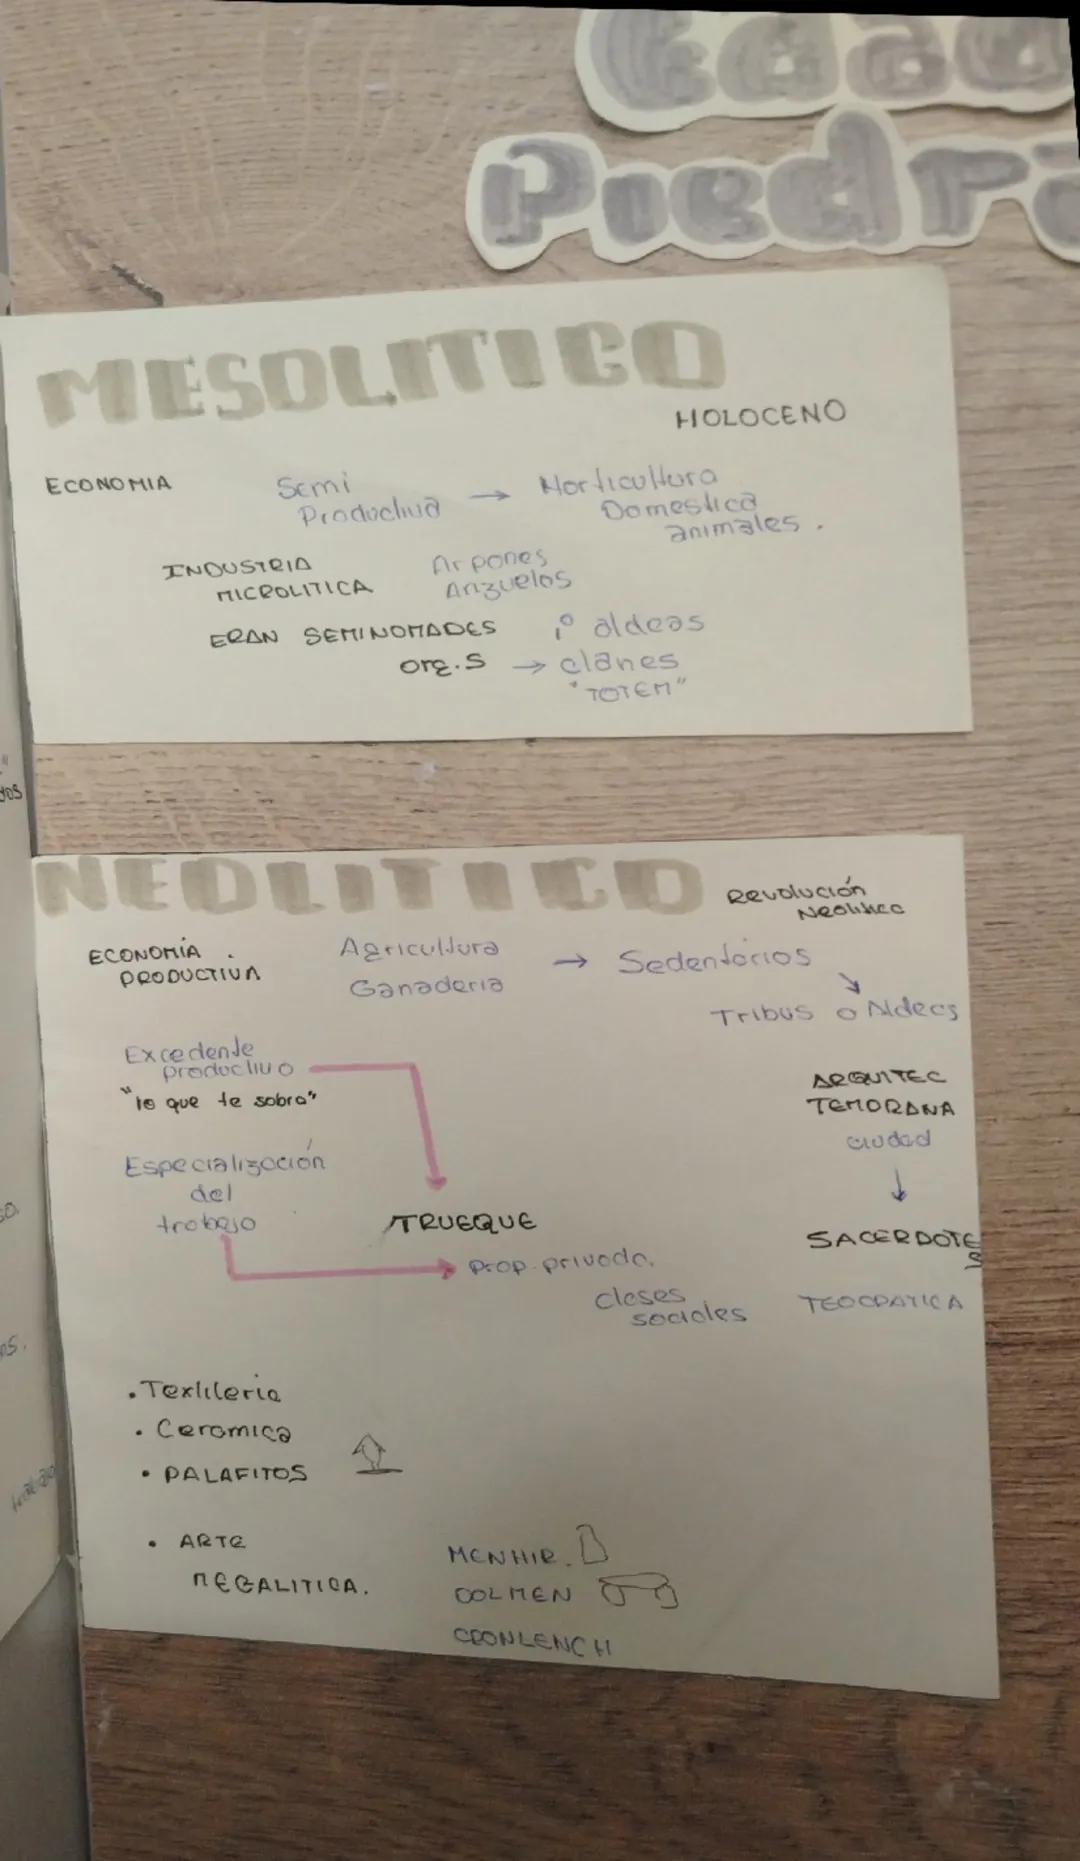 Edad
Piedra
MESOLITICO
HOLOCENO
ECONOMIA
Semi
Productiva → Horticultura
Domestica
animales.
INDUSTRIA
MICROLITICA
Arpones
Anzuelos
ERAN SEMINOMADES 1° aldeas
org.S → clanes
"TOTEM"
NEOLITICO
Revolución
Neolitico
ECONOMÍA.
PRODUCTIVA
Agricultura
Ganaderia
→ Sedentarios
Tribus o Aldeas
Excedente
productivo
"lo que te sobra"
Especialización
del
trabajo
TRUEQUE
Prop. privada.
Clases
sociales
ARQUITEC
TEMPRANA
ciudad
↓
SACERDOTES
TEOCRATICA
• Textileria
• Ceramica
• PALAFITOS
• ARTE
MEGALITICA.
MENHIR.
DOLMEN
CRONLENCH